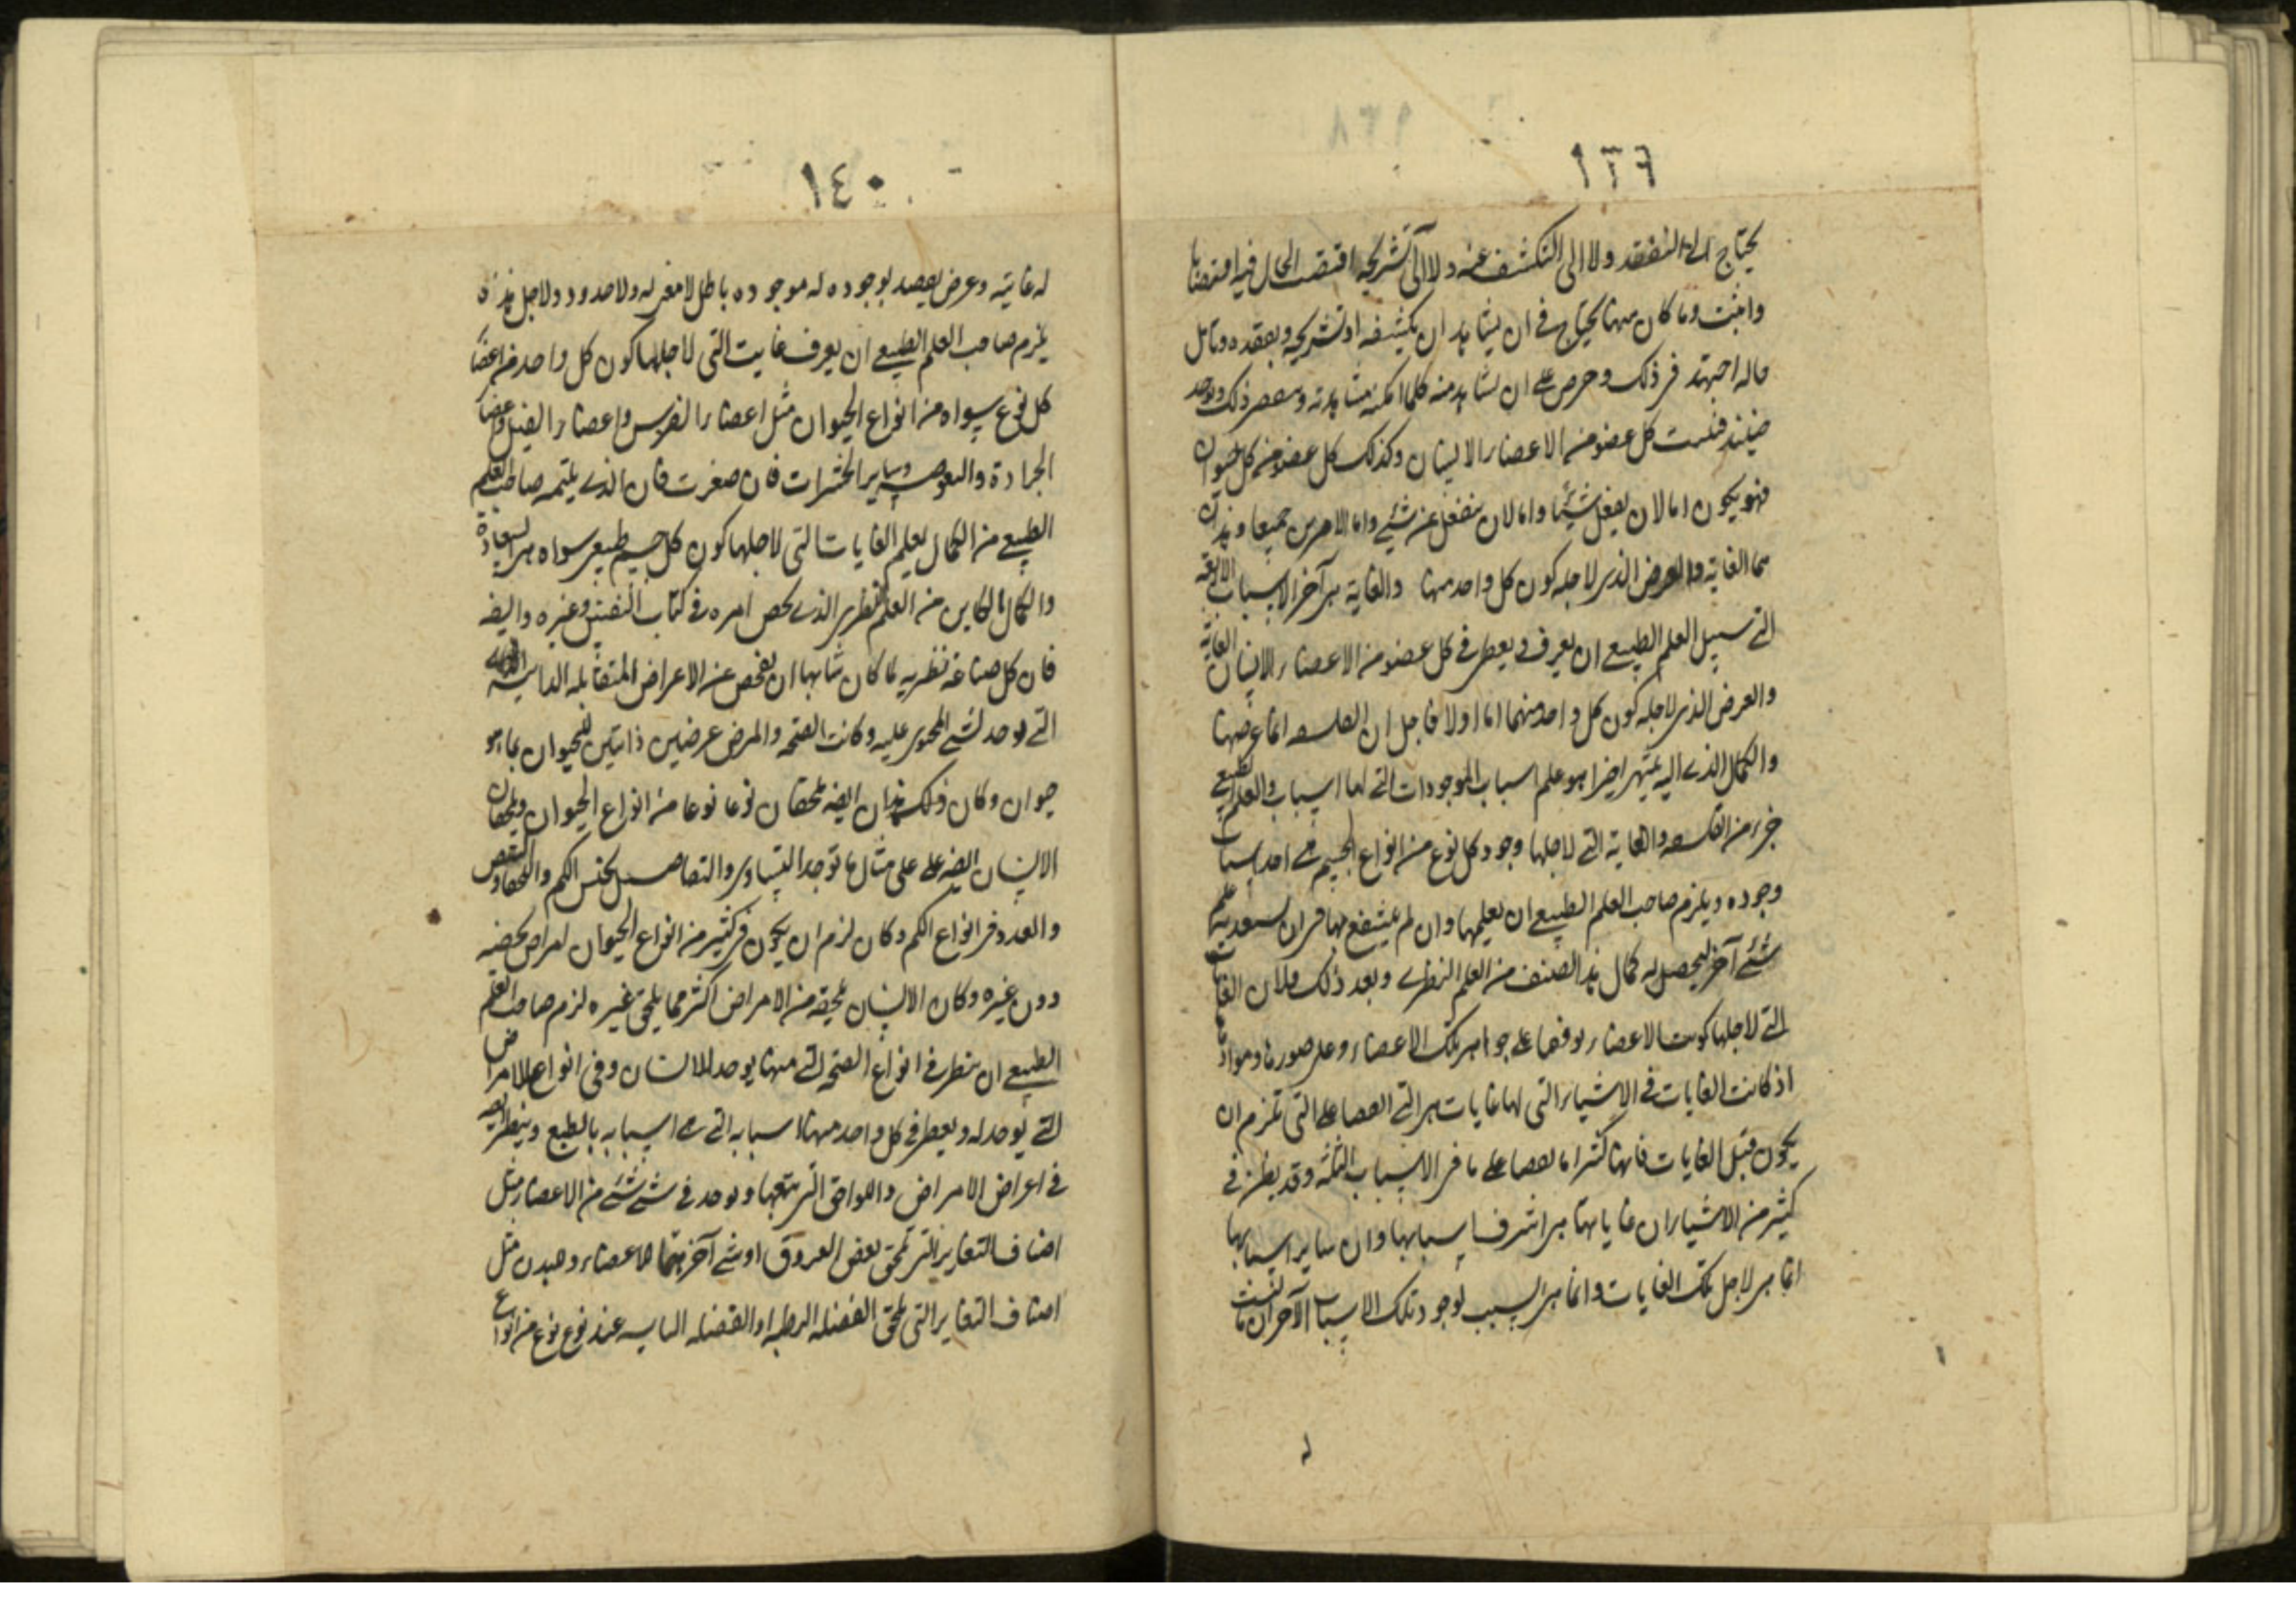 ١٣٩
يحتاج الى التفقد ولا الى التكشف عنه ولا الى تشريحه اقتصت الحال فيه اقتصاصا
واثبت وما كان منها يحتاج في ان يشاهد ان يكشفه او تشريحه وبعقده وتامل
ماله اجتهد في ذلك وحرص على ان يشاهد منه كلما امكنه مشاهدته ذلك
حينئذ كل عضو من الاعضاء الانسان وكذلك كل عضو من كل حيوان
فهو يكون اما لان يفعل شيئا واما لان ينفعل عن شيئ واما الامرين جميعا وهذان
هما الغاية والعرض الذى لاجله كون كل واحد منها والغاية هى آخر الاسباب الاربعة
التى سبيل العلم الطبيعى ان يعرف ويعطى في كل عضو من الاعضاء الانسان الغاية
والعرض الذى لاجله كون كل واحد منهما اما اولا فاجل ان الفلسفه انما غرضها
والكمال الذى اليه ينتهى اخيرا هو علم اسباب الموجودات التى لها اسباب والعلم الطبيعى
جزء من الفلسفه والغاية التى لاجلها وجود كل نوع من انواع الجسم هى احد اسباب
وجوده ويلزم صاحب العلم الطبيعى ان يعلمها وان لم ينتفع بها في ان علم
شئ آخر ليحصل له كمال هذا الصنف من العلم النظرى وبعد ذلك فلان الغايات
التى لاجلها كونت الاعضاء توقفنا على جواهر تلك الاعضاء وعلى صورها وموادها
اذ كانت الغايات في الاشياء التى لها غايات هى التى التى تلزم ان
يكون قبل الغايات فانها كثيرا ما على ما في الاسباب الثلثة وقد يظن في
كثير من الاشياء ان غاياتها هى اشرف اسبابها وان ساير اسبابها
انما هى لاجل تلك الغايات وانما هى السبب لوجود تلك الاسباب الآخر ان
١٤٠
له غاية وعرض يقصد بوجوده له موجوده باطل لا معنى له ولا حدود ولاجل هذا
يلزم صاحب العلم الطبيعى ان يعرف غايت التى لاجلها كون كل واحد من اعضا
كل نوع سواه من انواع الحيوان مثل اعضاء الفرس واعضاء الفيل واعضا
الجرادة والبعوضه وساير الحشرات فان صغرت فان الذى يلتمه صاحب العلم
الطبيعى من الكمال يعلم الغايات التى لاجلها كون كل جسم طبيعى سواه هى السعادة
والكمال الكاين من العلم النظرى الذى لخص امره في كتاب النفس وغيره وايضه
فان كل صناعة نظريه لما كان شانها ان يفحص عن الاعراض المتقابله الذاتيه
التى توجد لشئ المحتوى عليه وكانت الصحه والمرض عرضين ذاتيين للحيوان بما هو
حيوان وكان ذلك هذان ايضه يلحقان نوعا نوعا من انواع الحيوان ويلحقان
الانسان ايضه على مثال ما توجد التساوى والتفاضل لجنس الكم والتحقا
والعدد في انواع الكم وكان لزم ان يكون في كثير من انواع الحيوان امراض تخصه
دون غيره وكان الانسان يلحقه من الامراض اكثر مما يلحق غيره لزم صاحب العلم
الطبيعى ان ينظر في انواع الصحه التى منها يوجد للانسان وفى انواع الامراض
التى توجد له ويعطى في كل واحد منها اسبابه التى هى اسبابه بالطبع وينظر ايضه
في اعراض الامراض واللواحق التى يتبعها وتوجد في شئ شئ من الاعضاء مثل
اصناف التغاير التى تلحق بعض العروق او شئ آخر من الاعضاء وهيدن مثل
اصناف التغاير التى تلحق الفضله الرطبه او الفضله اليابسه عند نوع نوع من انواع